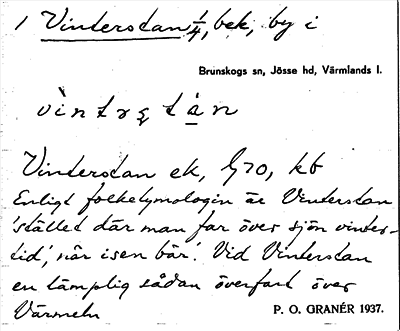 1 Vinterstan 1/4, bek, by i
Brunskogs sn, Jösse hd, Värmlands l.
vintrstan
Vinterstan ek, G70, kb
Enligt folketymologin är Vinterstan
'stället där man far över sjön vinter-
tid', när isen bär'. Vid Vinterstan
en lämplig sådan överfart över
Värmeln
P. O. GRANÉR 1937.